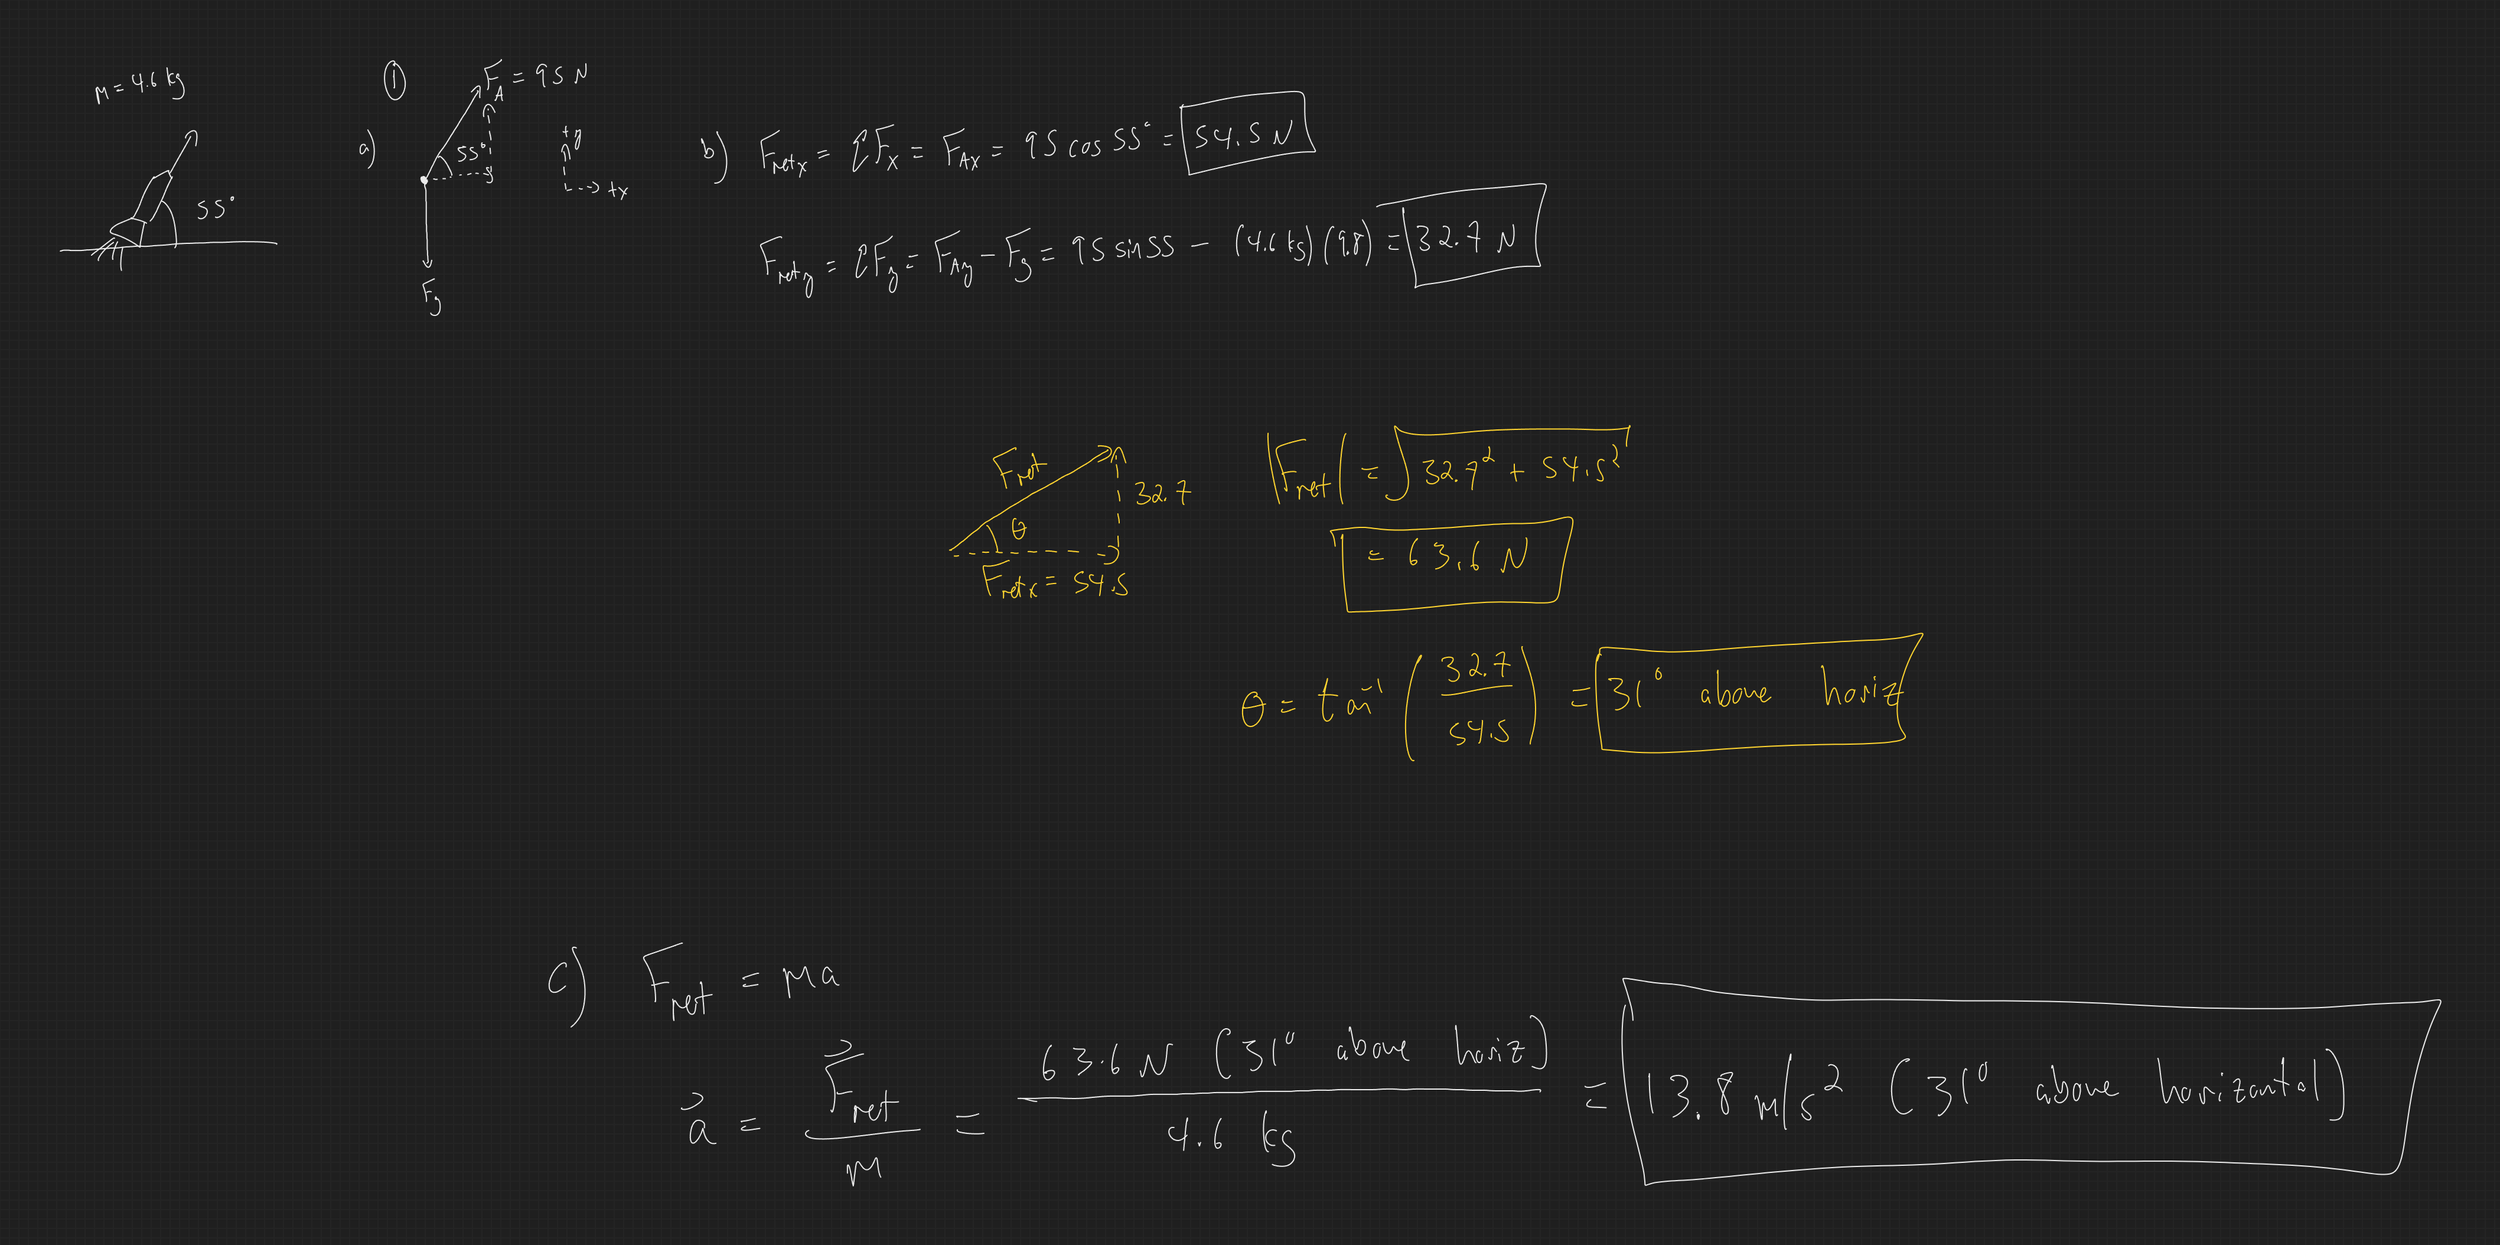 m = 4.6 kg
①
F_A = 95 N
a)
55°
55°
+y
+x
F_g
b) F_net x = ΣF_x = F_Ax = 95 cos 55° = 54.5 N
F_net y = ΣF_y = F_Ay − F_g = 95 sin 55 − (4.6 kg)(9.8) = 32.7 N
F_net
θ
32.7
F_net x = 54.5
|F_net| = √(32.7² + 54.5²)
= 63.6 N
θ = tan⁻¹ (32.7 / 54.5) = 31° above horiz
c) F_net = ma
a⃗ = F⃗_net / m = 63.6 N (31° above horiz) / 4.6 kg = 13.8 m/s² (31° above horizontal)